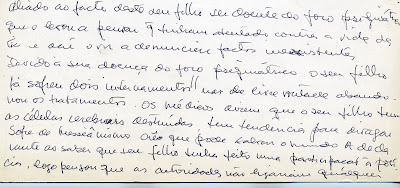 aliado ao facto deste seu filho ser doente do foro psiquiátrico
que o levou a pensar q tinham atentado contra a vida da
e e aí vir a denunciar factos inexistentes
Devido à sua doença do foro psiquiátrico o seu filho
já sofreu dois internamentos mas de livre vontade abando-
nou os tratamentos. Os médicos dizem que o seu filho tem
as células cerebrais destruídas, tem tendencia para drogas
Sofre de messianismo crê que pode salvar o mundo A decla
rante ao saber que seu filho tinha feito uma participação à polí
cia, logo pensou que as autoridades não ligariam qualquer